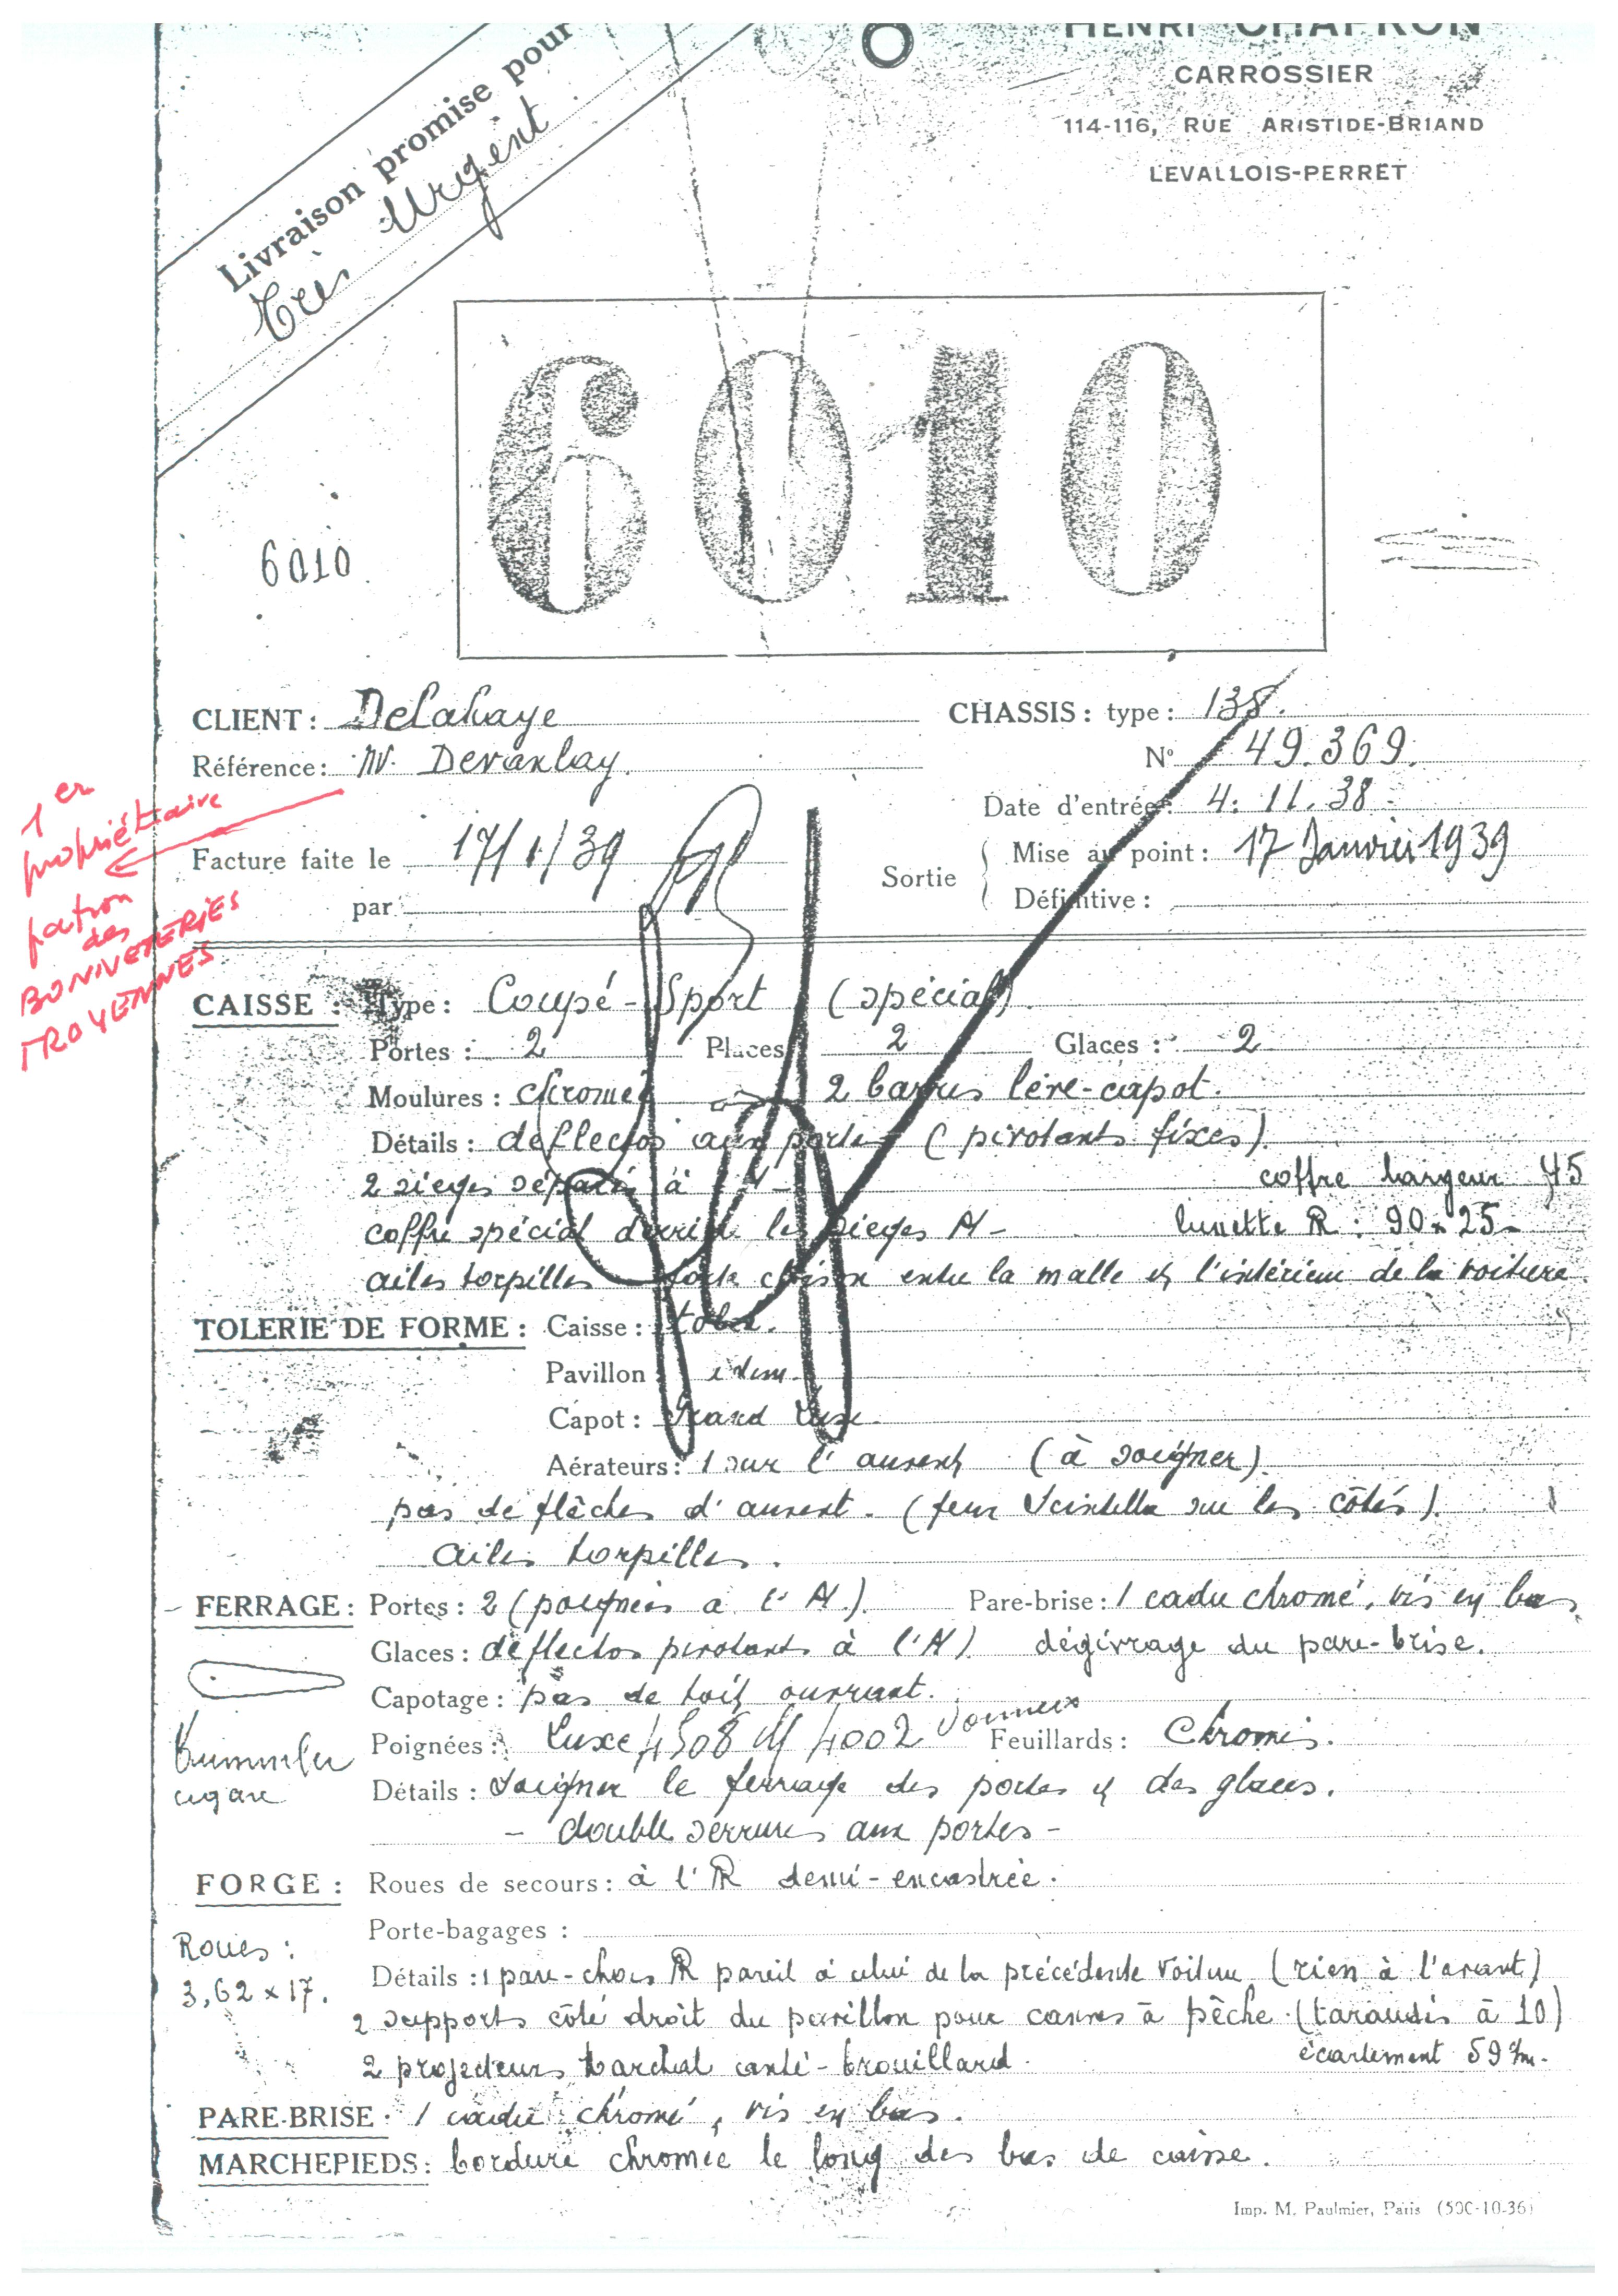 HENRI CHAPRON
CARROSSIER
114-116, RUE ARISTIDE-BRIAND
LEVALLOIS-PERRET
Livraison promise pour
Très Urgent
6010
6010
CLIENT : Delahaye
CHASSIS : type : 135.
Référence :
N° 49.369.
Date d'entrée : 4. 11. 38.
1er
propriétaire
patron
des
BONNETERIES
TROYENNES
Facture faite le 17/1/39
par
Sortie
Mise au point : 17 Janvier 1939
Définitive :
CAISSE : Type : Coupé - Sport (spécial).
Portes : 2 Places 2 Glaces : 2
Moulures : chromée 2 barres lève-capot.
Détails : déflectos aux portes (pivotants fixes).
2 sièges séparés à l'AV - coffre largeur 45
coffre spécial derrière les sièges AV - lunette AR : 90 x 25 -
ailes torpilles cloison entre la malle et l'intérieur de la voiture.
TOLERIE DE FORME : Caisse :
Pavillon : idem.
Capot : Grand Luxe.
Aérateurs : 1 sur l'auvent (à soigner).
pas de flèches d'auvent. (feux Scintella sur les côtés).
ailes torpilles.
FERRAGE : Portes : 2 (poignées à l'AV). Pare-brise : 1 cadre chromé, vis en bas.
Glaces : déflectos pivotants à l'AV) dégivrage du pare-brise.
Capotage : pas de toit ouvrant.
Poignées : Luxe 4508 et 4002 Vonneux Feuillards : Chromés.
cigare
Détails : Soigner le ferrage des portes et des glaces.
- double serrures aux portes -
FORGE : Roues de secours : à l'AR demi-encastrée.
Porte-bagages :
Roues :
3,62 x 17.
Détails : 1 pare-chocs AR pareil à celui de la précédente voiture (rien à l'avant)
2 supports côté droit du pavillon pour cannes à pêche (taraudés à 10)
écartement 59 %m.
2 projecteurs Marchal anti-brouillard.
PARE-BRISE : 1 cadre chromé, vis en bas.
MARCHEPIEDS : bordure chromée le long des bas de caisse.
Imp. M. Paulmier, Paris (50C-10-36)